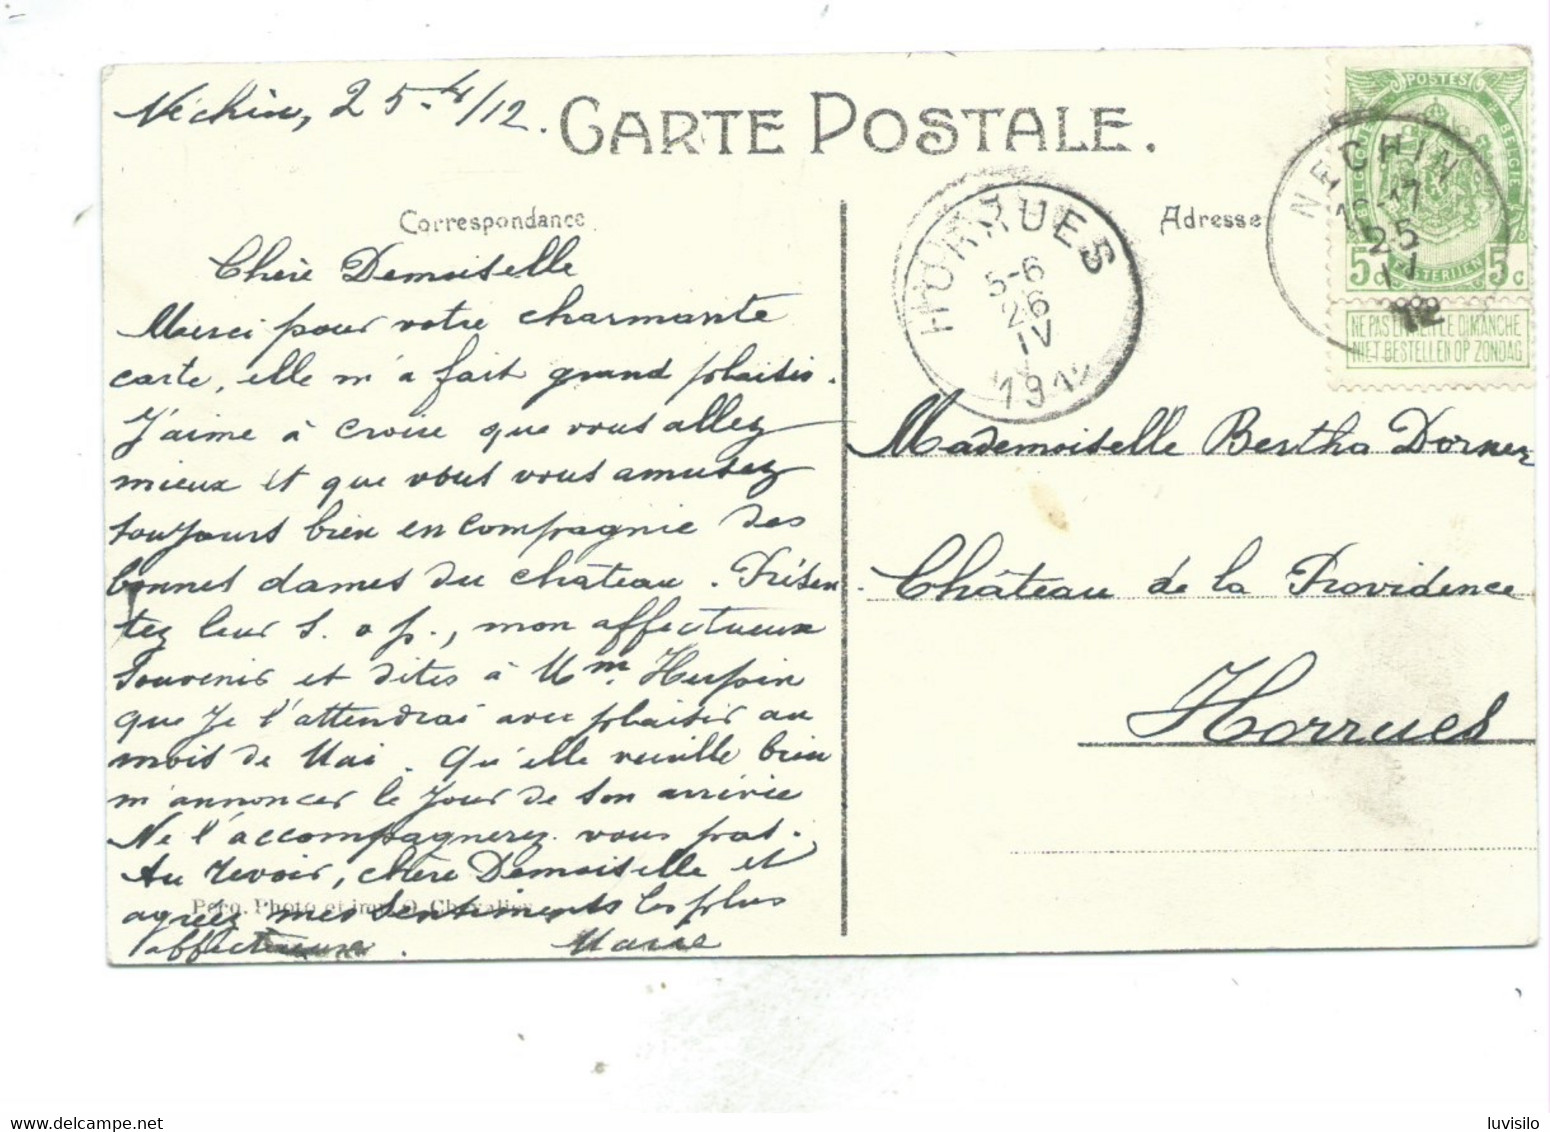 Néchin, 25-4/12.
CARTE POSTALE.
Correspondance
Adresse
Chère Demoiselle
Merci pour votre charmante
carte, elle m'a fait grand plaisir.
J'aime à croire que vous allez
mieux et que vous vous amusez
toujours bien en compagnie des
bonnes dames du château. Présen
tez leur s. v. p., mon affectueux
souvenir et dites à Mm. Herpin
que je l'attendrai avec plaisir au
mois de Mai. Qu'elle veuille bien
m'annoncer le jour de son arrivée
Ne l'accompagnerez vous pas.
Au revoir, chère Demoiselle et
agréez mes sentiments les plus
affectueux. Marie
Photo et imp. O. Chevalier
HORRUES
5-6
26
IV
1912
NECHIN
25
12
POSTES
BELGIQUE
BELGIË
POSTERIJEN
5c 5c
NE PAS LIVRER LE DIMANCHE
NIET BESTELLEN OP ZONDAG
Mademoiselle Bertha Dorner
Château de la Providence
Horrues
luvisilo